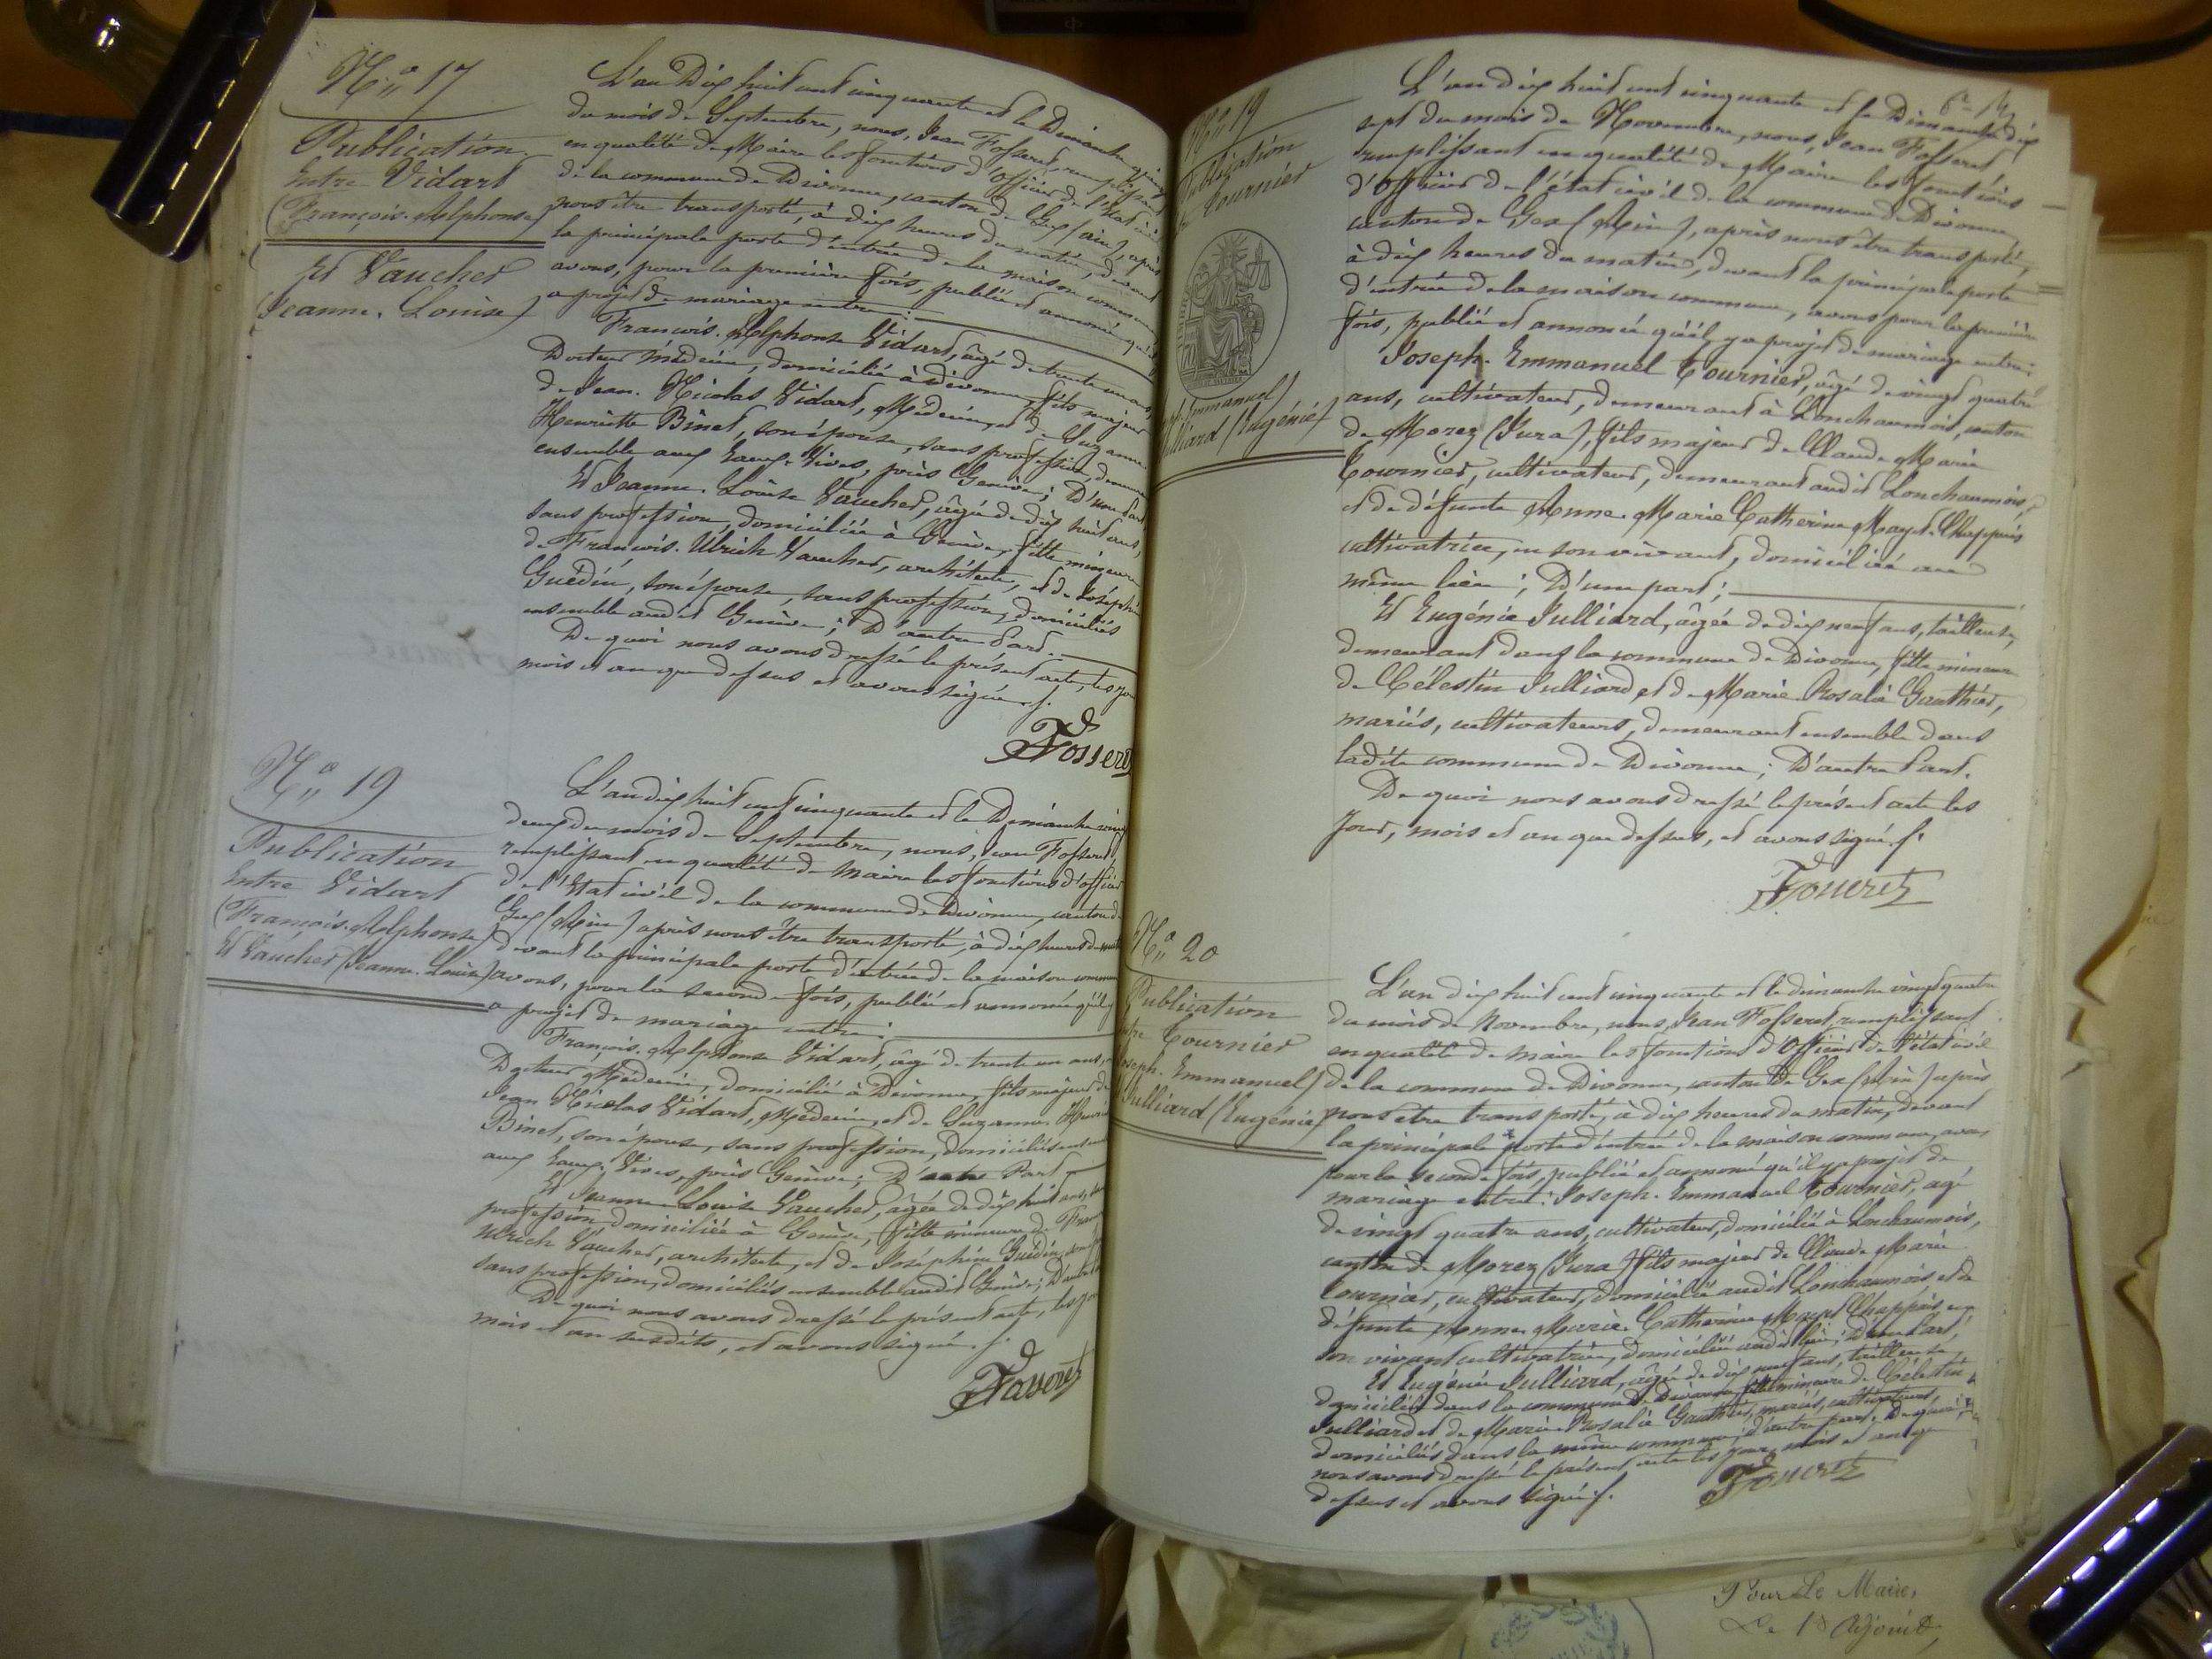 N° 17
Publication
Entre Vidart
(François-Alphonse)
Et Vaucher
(Jeanne-Louise)
L'an Dix huit cent cinquante et le Dimanche quinze
du mois de Septembre, nous, Jean Fosseret, remplissant
en qualité de Maire les fonctions d'officier de l'état civil
de la commune de Divonne, canton de Gex (ain), après
nous être transporté, à dix heures du matin, devant
la principale porte d'entrée de la maison commune
avons, pour la première fois, publié et annoncé qu'il y
a projet de mariage entre :
François-Alphonse Vidart, âgé de trente un ans,
Docteur médecin, domicilié à Divonne, fils majeur
de Jean-Nicolas Vidart, Médecin, et de Suzanne
Henriette Binet, son épouse, sans profession, demeurant
ensemble aux Eaux-Vives, près Genève; D'une Part
Et Jeanne-Louise Vaucher, âgée de dix huit ans,
sans profession, domiciliée à Genève, fille mineure
de François-Ulrich Vaucher, architecte, et de Joséphine
Guédin, son épouse, sans profession, domiciliés
ensemble audit Genève; D'autre Part.
De quoi nous avons dressé le présent acte, les jour
mois et an que dessus et avons signé ./.
Fosseret
N° 19
Publication
Entre Vidart
(François-Alphonse)
Et Vaucher (Jeanne-Louise)
L'an dix huit cent cinquante et le Dimanche vingt
deux du mois de Septembre, nous, Jean Fosseret,
remplissant en qualité de Maire les fonctions d'officier
de l'Etat civil de la commune de Divonne, canton de
Gex (Ain) après nous être transporté, à dix heures du matin
devant la principale porte d'entrée de la maison commune
avons, pour la seconde fois, publié et annoncé qu'il y
a projet de mariage entre :
François-Alphonse Vidart, âgé de trente un ans,
Docteur Médecin, domicilié à Divonne, fils majeur de
Jean Nicolas Vidart, Médecin, et de Suzanne-Henriette
Binet, son épouse, sans profession, domiciliés ensemble
aux Eaux-Vives, près Genève; D' Part
Et Jeanne-Louise Vaucher, âgée de dix huit ans, sans
profession, domiciliée à Genève, fille mineure de François
Ulrich Vaucher, architecte, et de Joséphine Guédin, son
sans profession, domiciliés ensemble audit Genève; D'autre
De quoi nous avons dressé le présent acte, les jour
mois et an susdits, et avons signé ./.
Fosseret
N° 19
Publication
Tournier
Emmanuel)
Julliard (Eugénie)
L'an dix huit cent cinquante et le Dimanche dix
sept du mois de Novembre, nous, Jean Fosseret,
remplissant en qualité de Maire les fonctions
d'officier de l'état civil de la commune de Divonne,
canton de Gex (Ain), après nous être transporté,
à dix heures du matin, devant la principale porte
d'entrée de la maison commune, avons pour la première
fois, publié et annoncé qu'il y a projet de mariage entre:
Joseph-Emmanuel Tournier, âgé de vingt quatre
ans, cultivateur, demeurant à Lonchaumois, canton
de Morez (Jura), fils majeur de Claude Marie
Tournier, cultivateur, demeurant audit Lonchaumois,
et de défunte Anne-Marie Catherine Mayet-Chappuis
cultivatrice, en son vivant, domiciliée au
même lieu; D'une part;
Et Eugénie Julliard, âgée de dix neuf ans, tailleuse,
demeurant dans la commune de Divonne, fille mineure
de Célestin Julliard et de Marie Rosalie Gauthier,
mariés, cultivateurs, demeurant ensemble dans
ladite commune de Divonne; D'autre Part.
De quoi nous avons dressé le présent acte les
jour, mois et an que dessus, et avons signé ./.
Fosseret
N° 20
Publication
Entre Tournier
Joseph-Emmanuel)
Julliard (Eugénie)
L'an dix huit cent cinquante et le dimanche vingt quatre
du mois de Novembre, nous, Jean Fosseret, remplissant
en qualité de maire les fonctions d'Officier de l'état civil
de la commune de Divonne, canton de Gex (Ain) après
nous être transporté, à dix heures du matin, devant
la principale porte d'entrée de la maison commune, avons
pour la seconde fois, publié et annoncé qu'il y a projet de
mariage entre: Joseph-Emmanuel Tournier, âgé
de vingt quatre ans, cultivateur, domicilié à Lonchaumois,
canton de Morez (Jura) fils majeur de Claude Marie
Tournier, cultivateur, domicilié audit Lonchaumois et de
défunte Anne-Marie-Catherine Mayet Chappuis en
son vivant cultivatrice, domiciliée audit lieu; D'une Part;
Et Eugénie Julliard, âgée de dix neuf ans, tailleuse,
domiciliée dans la commune de Divonne, fille mineure de Célestin
Julliard et de Marie-Rosalie Gauthier, mariés, cultivateurs,
domiciliés dans la même commune; d'autre part. De quoi
nous avons dressé le présent acte les jour, mois et an que
dessus et avons signé ./.
Fosseret
Pour Le Maire,
Le 1er Adjoint,